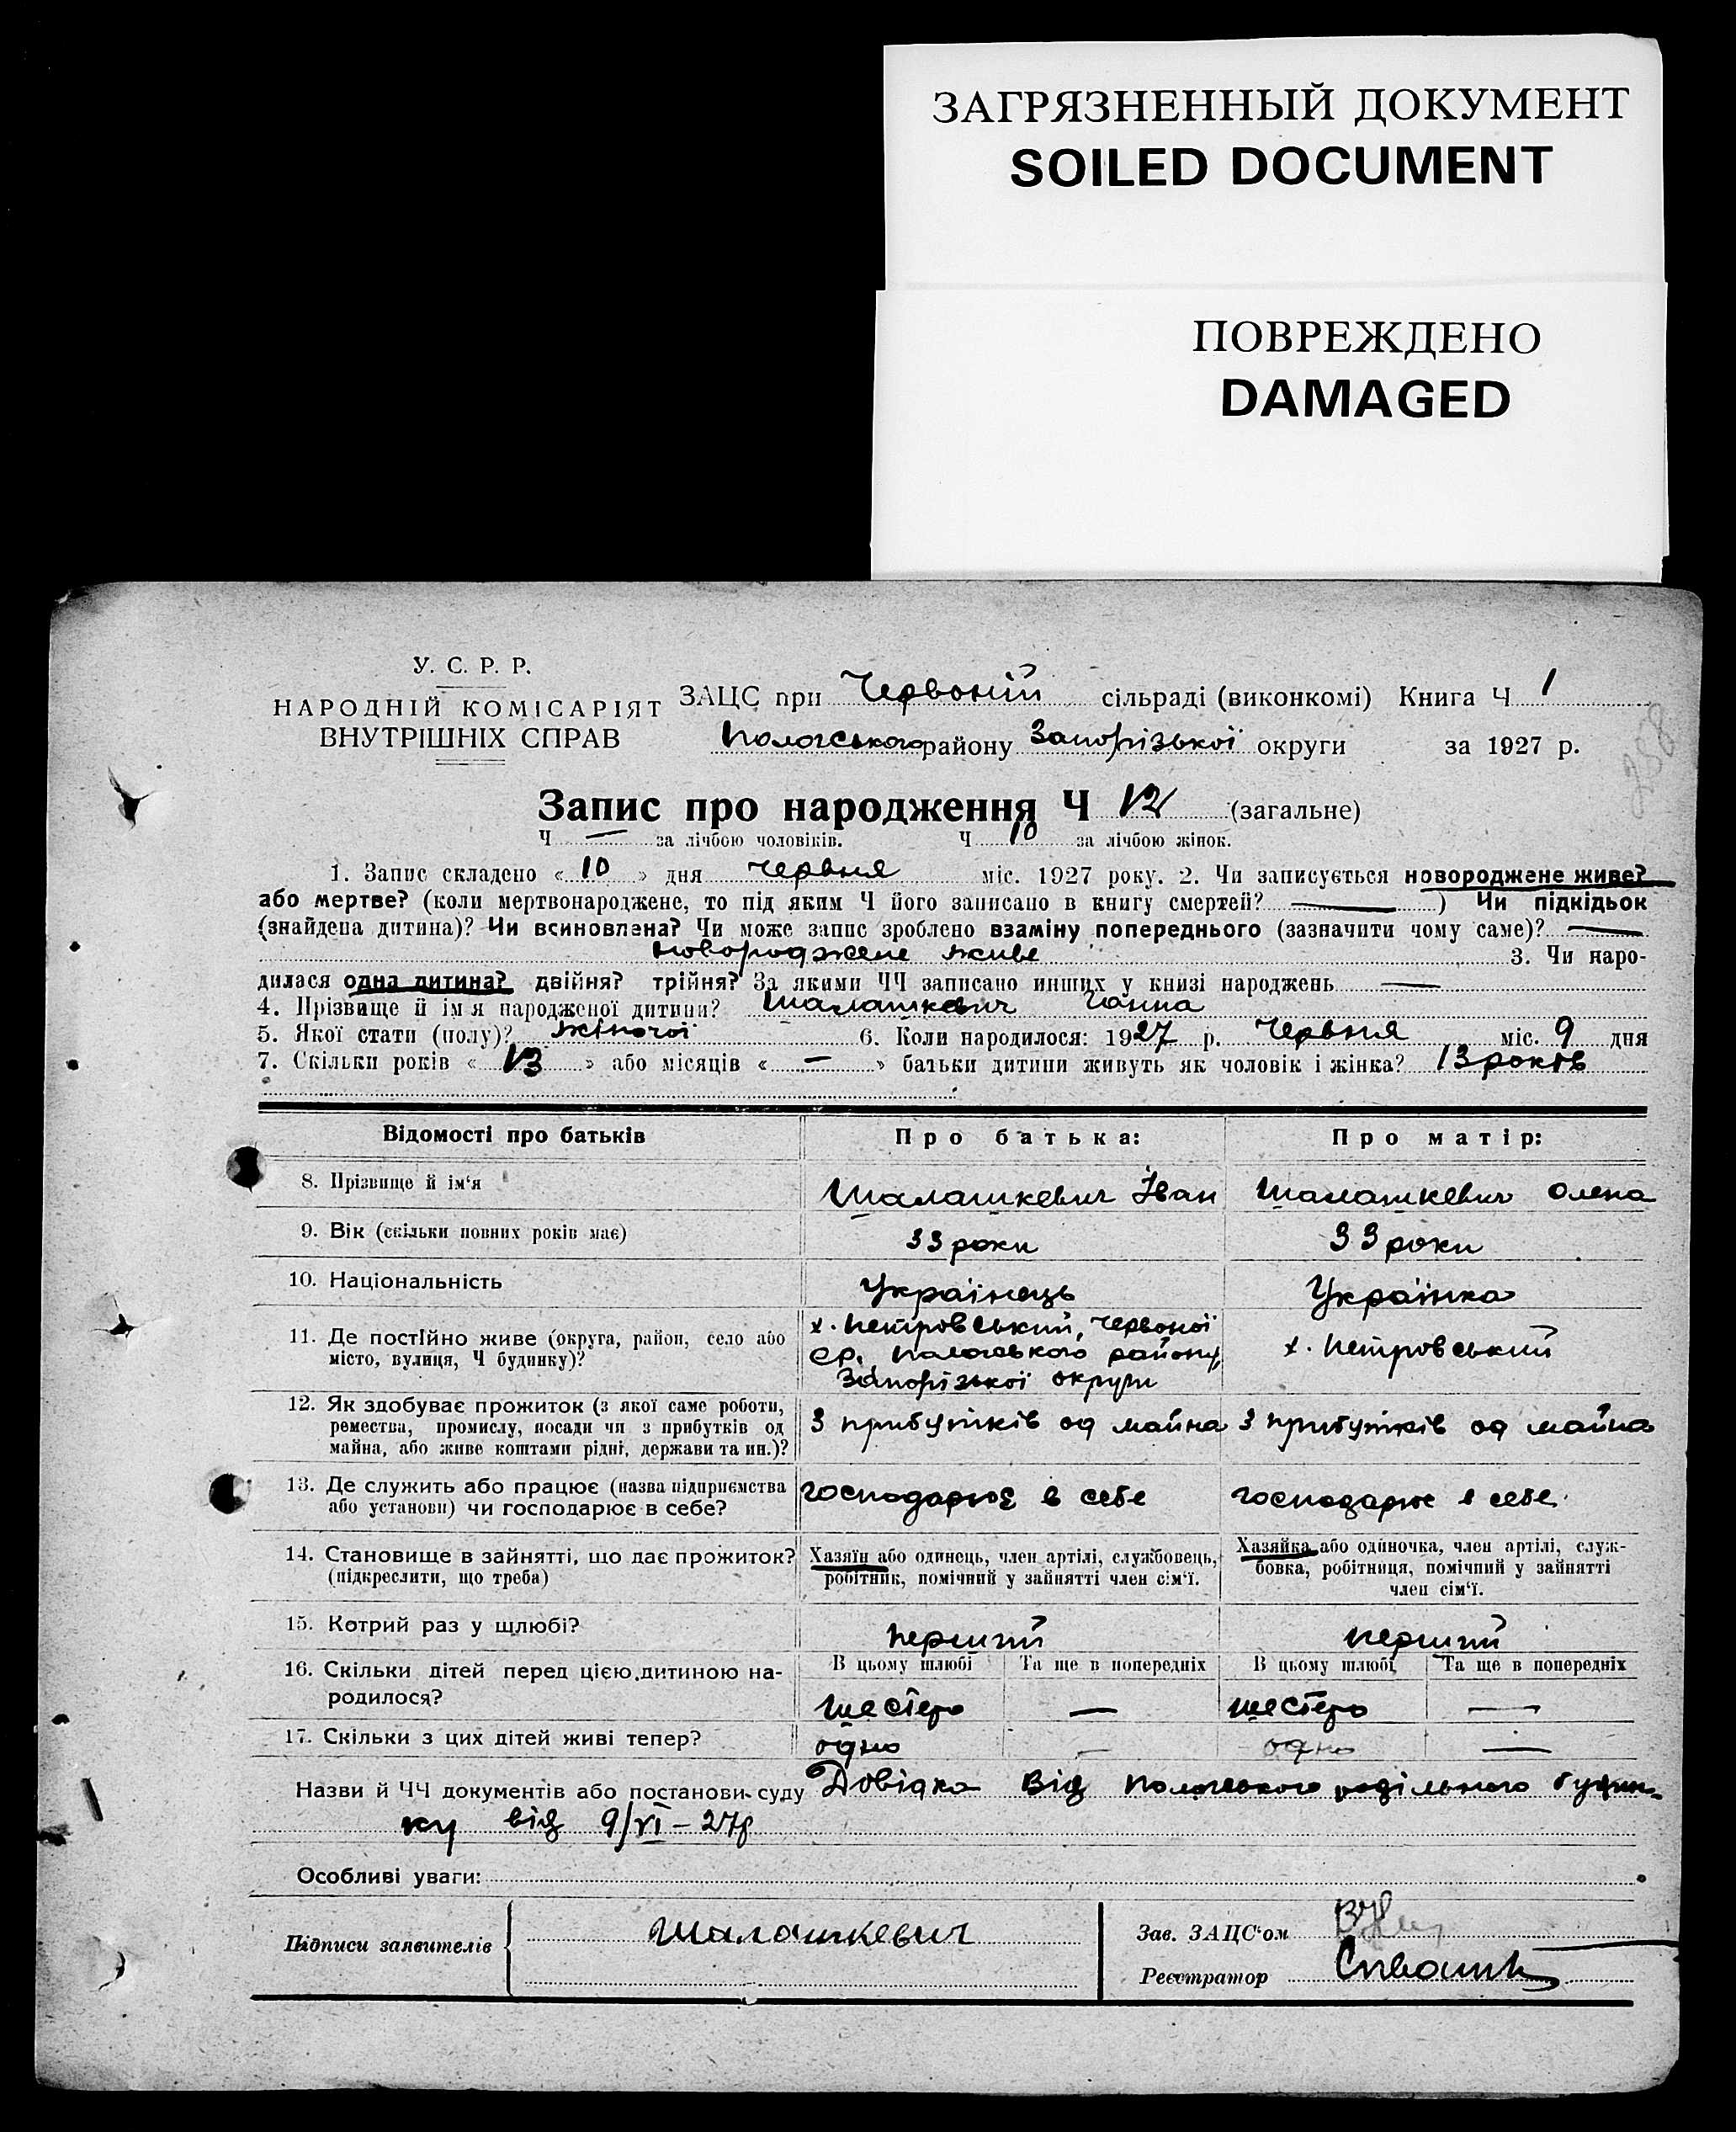 ЗАГРЯЗНЕННЫЙ ДОКУМЕНТ
SOILED DOCUMENT
ПОВРЕЖДЕНО
DAMAGED
У. С. Р. Р.
НАРОДНІЙ КОМІСАРІЯТ
ВНУТРІШНІХ СПРАВ
ЗАЦС при Червоній сільраді (виконкомі) Книга Ч 1
Пологського району Запорізької округи за 1927 р.
258
Запис про народження Ч 12 (загальне)
Ч — за лічбою чоловіків. Ч 10 за лічбою жінок.
1. Запис складено «10» дня червня міс. 1927 року. 2. Чи записується новороджене живе?
або мертве? (коли мертвонароджене, то під яким Ч його записано в книгу смертей? —) Чи підкідьок
(знайдена дитина)? Чи всиновлена? Чи може запис зроблено взаміну попереднього (зазначити чому саме)? —
новороджене живе 3. Чи наро-
дилася одна дитина? двійня? трійня? За якими ЧЧ записано инших у книзі народжень —
4. Прізвище й ім'я народженої дитини? Шалашкевич Ганна
5. Якої стати (полу)? жіночої 6. Коли народилося: 1927 р. Червня міс. 9 дня
7. Скільки років «13» або місяців «—» батьки дитини живуть як чоловік і жінка? 13 років
Відомості про батьків Про батька: Про матір:
8. Прізвище й ім'я Шалашкевич Іван Шалашкевич Олена
9. Вік (скільки повних років має) 33 роки 33 роки
10. Національність Українець Українка
11. Де постійно живе (округа, район, село або
місто, вулиця, Ч будинку)?
х. Петровський, Червоної
ср., Пологського району,
Запорізької округи
х. Петровський
12. Як здобуває прожиток (з якої саме роботи,
ремества, промислу, посади чи з прибутків од
майна, або живе коштами рідні, держави та ин.)?
З прибутків од майна З прибутків од майна
13. Де служить або працює (назва підприємства
або установи) чи господарює в себе?
господарює в себе господарює в себе
14. Становище в зайнятті, що дає прожиток?
(підкреслити, що треба)
Хазяїн або одинець, член артілі, службовець,
робітник, помічний у зайнятті член сім'ї.
Хазяйка або одиночка, член артілі, служ-
бовка, робітниця, помічний у зайнятті
член сім'ї.
15. Котрий раз у шлюбі? перший перший
16. Скільки дітей перед цією дитиною на-
родилося?
В цьому шлюбі Та ще в попередніх В цьому шлюбі Та ще в попередніх
шестеро — шестеро —
17. Скільки з цих дітей живі тепер? одно — одно —
Назви й ЧЧ документів або постанови суду Довідка від Пологського родільного будин-
ку від 9/VI – 27р
Особливі уваги:
Підписи заявителів Шалашкевич
Зав. ЗАЦС'ом
Реєстратор